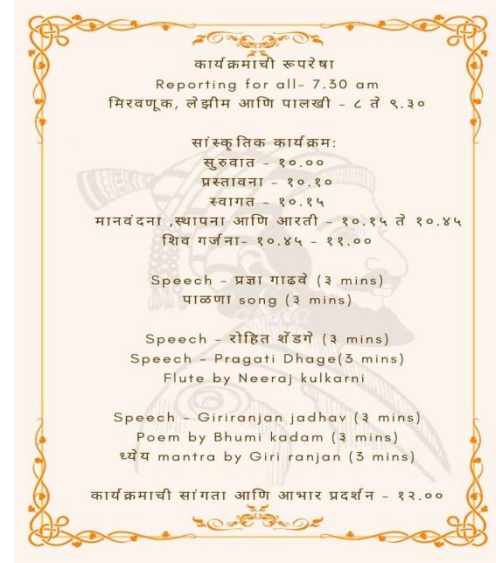 कार्यक्रमाची रूपरेषा
Reporting for all- 7.30 am
मिरवणूक, लेझीम आणि पालखी - ८ ते ९.३०
सांस्कृतिक कार्यक्रम:
सुरुवात - १०.००
प्रस्तावना - १०.१०
स्वागत - १०.१५
मानवंदना ,स्थापना आणि आरती - १०.१५ ते १०.४५
शिव गर्जना- १०.४५ - ११.००
Speech - प्रज्ञा गाढवे (३ mins)
पाळणा song (३ mins)
Speech - रोहित शेंडगे (३ mins)
Speech - Pragati Dhage(3 mins)
Flute by Neeraj kulkarni
Speech - Giriranjan jadhav (३ mins)
Poem by Bhumi kadam (३ mins)
ध्येय mantra by Giri ranjan (3 mins)
कार्यक्रमाची सांगता आणि आभार प्रदर्शन - १२.००